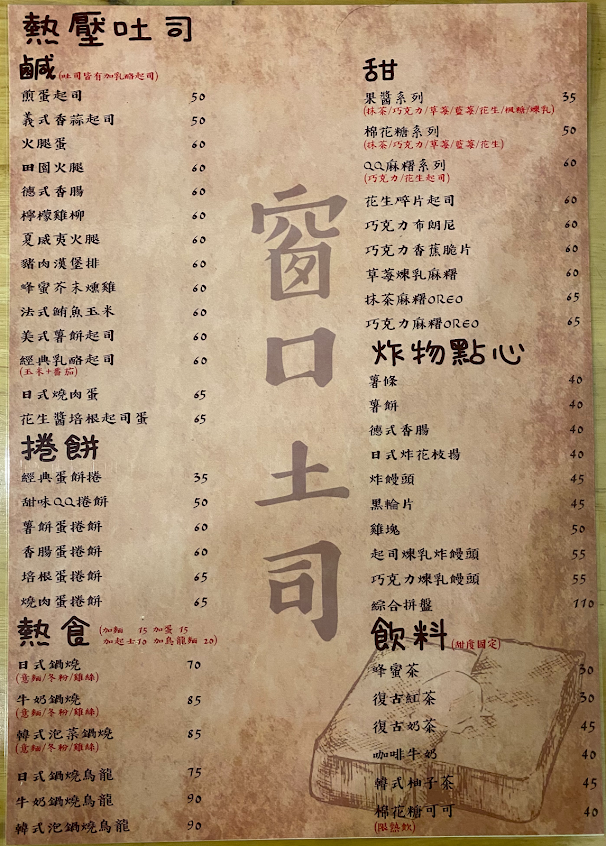 熱壓吐司
鹹(吐司皆有加乳酪起司)
煎蛋起司 50
義式香蒜起司 50
火腿蛋 60
田園火腿 60
德式香腸 60
檸檬雞柳 60
夏威夷火腿 60
豬肉漢堡排 60
蜂蜜芥末燻雞 60
法式鮪魚玉米 60
美式薯餅起司 60
經典乳酪起司 60
(玉米+番茄)
日式燒肉蛋 65
花生醬培根起司蛋 65
捲餅
經典蛋餅捲 35
甜味QQ捲餅 50
薯餅蛋捲餅 60
香腸蛋捲餅 60
培根蛋捲餅 65
燒肉蛋捲餅 65
熱食(加麵 15 加蛋 15
加起士10 加烏龍麵 20)
日式鍋燒 70
(意麵/冬粉/雞絲)
牛奶鍋燒 85
(意麵/冬粉/雞絲)
韓式泡菜鍋燒 85
(意麵/冬粉/雞絲)
日式鍋燒烏龍 75
牛奶鍋燒烏龍 90
韓式泡鍋燒烏龍 90
窗口土司
甜
果醬系列 35
(抹茶/巧克力/草莓/藍莓/花生/楓糖/煉乳)
棉花糖系列 50
(抹茶/巧克力/草莓/藍莓/花生)
QQ麻糬系列 60
(巧克力/花生起司)
花生碎片起司 60
巧克力布朗尼 60
巧克力香蕉脆片 60
草莓煉乳麻糬 60
抹茶麻糬OREO 65
巧克力麻糬OREO 65
炸物點心
薯條 40
薯餅 40
德式香腸 40
日式炸花枝揚 40
炸饅頭 45
黑輪片 45
雞塊 50
起司煉乳炸饅頭 55
巧克力煉乳饅頭 55
綜合拼盤 110
飲料(甜度固定)
蜂蜜茶 30
復古紅茶 30
復古奶茶 45
咖啡牛奶 40
韓式柚子茶 45
棉花糖可可 40
(限熱飲)